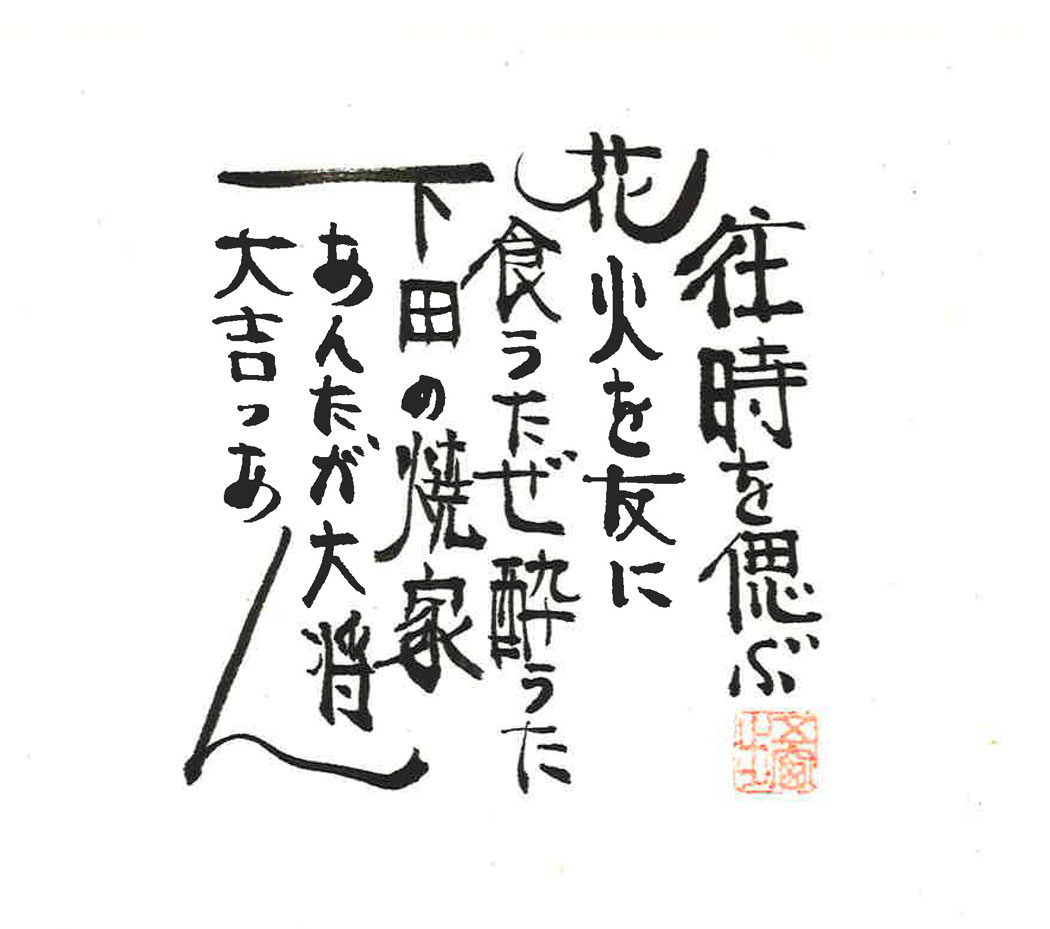 往時を偲ぶ
花火を友に
食うたぜ酔うた
下田の焼家
あんたが大将
大吉っあん